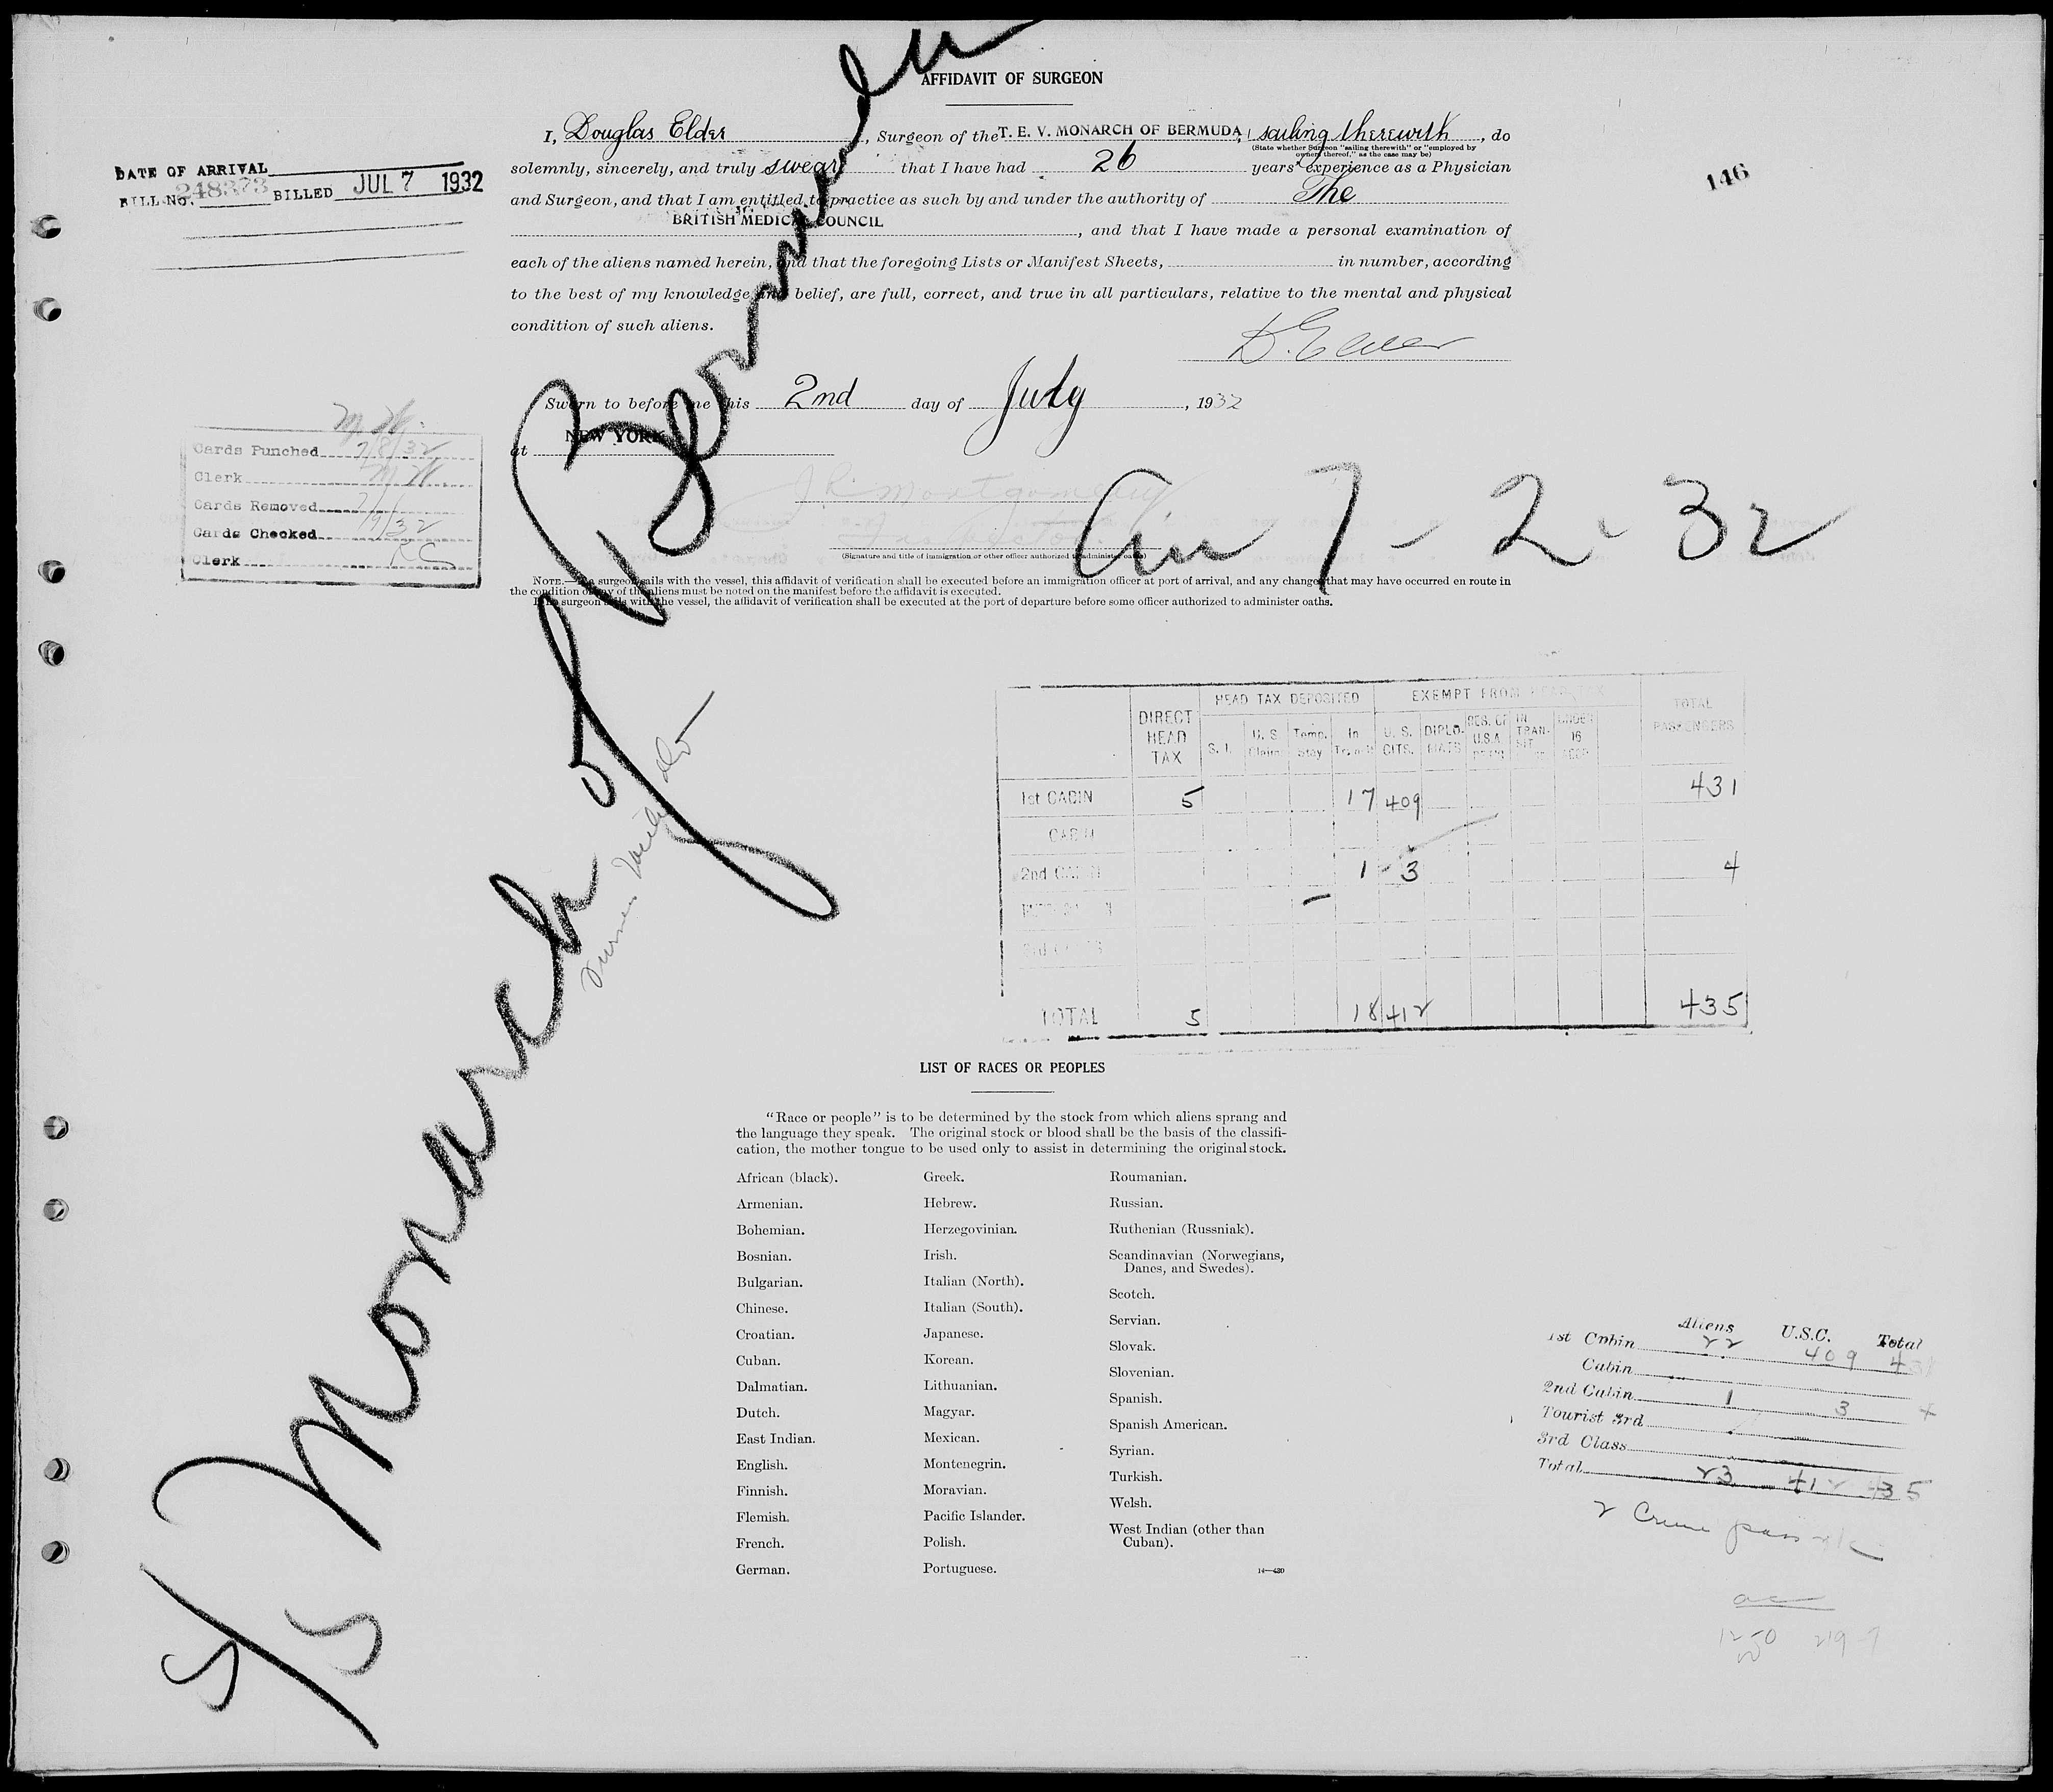 AFFIDAVIT OF SURGEON
I, Douglas Elder, Surgeon of the T. E. V. MONARCH OF BERMUDA, sailing therewith, do
(State whether Surgeon "sailing therewith" or "employed by
owners thereof," as the case may be)
solemnly, sincerely, and truly swear that I have had 26 years' experience as a Physician
and Surgeon, and that I am entitled to practice as such by and under the authority of The
BRITISH MEDICAL COUNCIL, and that I have made a personal examination of
each of the aliens named herein, and that the foregoing Lists or Manifest Sheets, in number, according
to the best of my knowledge and belief, are full, correct, and true in all particulars, relative to the mental and physical
condition of such aliens.
D. Elder
Sworn to before me this 2nd day of July, 1932
at NEW YORK
J R Montgomery
Inspector
(Signature and title of immigration or other officer authorized to administer oaths)
NOTE.—If a surgeon sails with the vessel, this affidavit of verification shall be executed before an immigration officer at port of arrival, and any changes that may have occurred en route in
the condition of any of the aliens must be noted on the manifest before the affidavit is executed.
surgeon sails with the vessel, the affidavit of verification shall be executed at the port of departure before some officer authorized to administer oaths.
DATE OF ARRIVAL
BILL No. 248373 BILLED JUL 7 1932
146
Cards Punched 7/8/32
Clerk M W.
Cards Removed
Cards Checked 7/9/32
Clerk RC
S/S Monarch of Bermuda
Arr 7-2-32
DIRECT HEAD TAX HEAD TAX DEPOSITED EXEMPT FROM HEAD TAX TOTAL PASSENGERS
S. I. U. S. Claim Temp. Stay In Transit U. S. CITS. DIPLOMATS RES. OF U.S.A. IN TRANSIT UNDER 16
1st CABIN 5 17 409 431
CABIN
2nd CABIN 1 3 4
TOTAL 5 18 412 435
LIST OF RACES OR PEOPLES
"Race or people" is to be determined by the stock from which aliens sprang and
the language they speak. The original stock or blood shall be the basis of the classifi-
cation, the mother tongue to be used only to assist in determining the original stock.
African (black).
Armenian.
Bohemian.
Bosnian.
Bulgarian.
Chinese.
Croatian.
Cuban.
Dalmatian.
Dutch.
East Indian.
English.
Finnish.
Flemish.
French.
German.
Greek.
Hebrew.
Herzegovinian.
Irish.
Italian (North).
Italian (South).
Japanese.
Korean.
Lithuanian.
Magyar.
Mexican.
Montenegrin.
Moravian.
Pacific Islander.
Polish.
Portuguese.
Roumanian.
Russian.
Ruthenian (Russniak).
Scandinavian (Norwegians,
Danes, and Swedes).
Scotch.
Servian.
Slovak.
Slovenian.
Spanish.
Spanish American.
Syrian.
Turkish.
Welsh.
West Indian (other than
Cuban).
14—430
Aliens U.S.C. Total
1st Cabin 22 409 431
Cabin
2nd Cabin 1 3 4
Tourist 3rd
3rd Class
Total 23 412 435